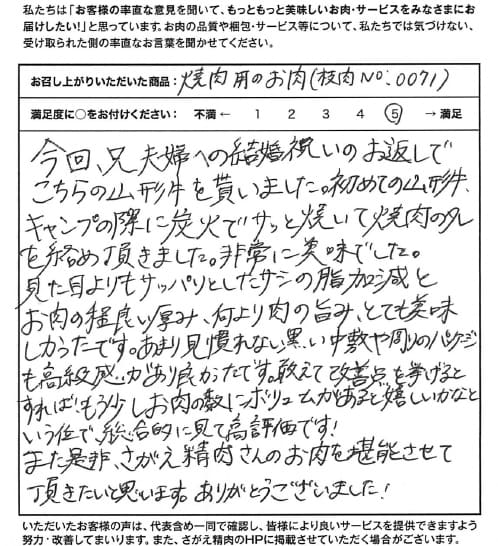 私たちは「お客様の率直な意見を聞いて、もっともっと美味しいお肉・サービスをみなさまにお
届けしたい!」と思っています。お肉の品質や梱包・サービス等について、私たちでは気づけない、
受け取られた側の率直なお言葉を聞かせてください。
お召し上がりいただいた商品:焼肉用のお肉(枝肉No:0071)
満足度に○をお付けください: 不満 ← 1 2 3 4 5 → 満足
今回、兄夫婦への結婚祝いのお返しで
こちらの山形牛を貰いました。初めての山形牛、
キャンプの際に炭火でサッと焼いて焼肉のタレ
を絡め頂きました。非常に美味でした。
見た目よりもサッパリとしたサシの脂加減と
お肉の程良い厚み、何より肉の旨み、とても美味
しかったです。あまり見慣れない黒い中敷や周りのパッケージ
も高級感があり良かったです。敢えて改善点を挙げると
すれば、もう少しお肉の数にボリュームがあると嬉しいかなと
いう位で、総合的に見て高評価です!
また是非、さがえ精肉さんのお肉を堪能させて
頂きたいと思います。ありがとうございました!
いただいたお客様の声は、代表含め一同で確認し、皆様により良いサービスを提供できますよう
努力・改善してまいります。また、さがえ精肉のHPに掲載させていただく場合がございます。